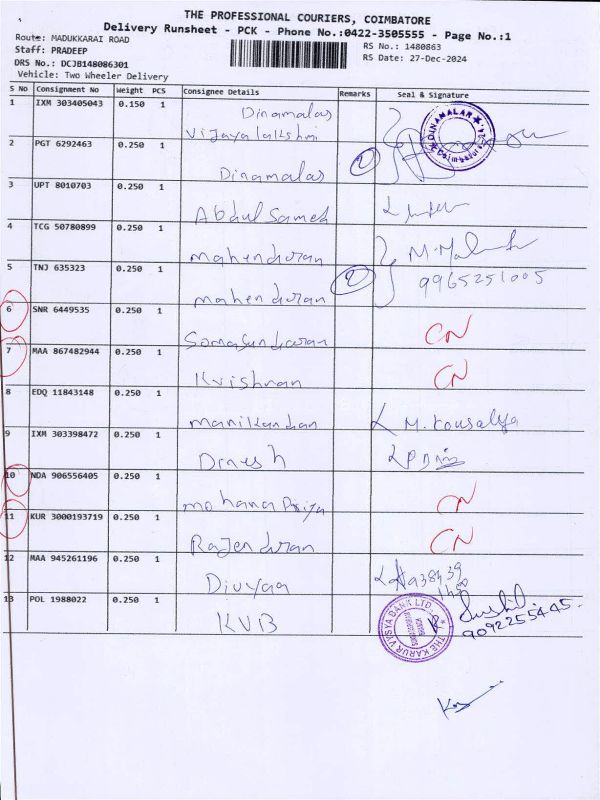 THE PROFESSIONAL COURIERS, COIMBATORE
Delivery Runsheet - PCK - Phone No.:0422-3505555 - Page No.:1
Route: MADUKKARAI ROAD
Staff: PRADEEP
DRS No.: DCJB148086301
Vehicle: Two Wheeler Delivery
RS No.: 1480863
RS Date: 27-Dec-2024
S No Consignment No Weight PCS Consignee Details Remarks Seal & Signature
1 IXM 303405043 0.150 1 Dinamalar
Vijayalakshmi
DINAMALAR
Coimbatore
2 PGT 6292463 0.250 1 Dinamalar 2
3 UPT 8010703 0.250 1 Abdul Samed
4 TCG 50780899 0.250 1 Mahenduran
5 TNJ 635323 0.250 1 Mahenduran 2 9965251005
6 SNR 6449535 0.250 1 Somasundaran CN
7 MAA 867482944 0.250 1 Kvishnan CN
8 EDQ 11843148 0.250 1 Manikandan M. Kousalya
9 IXM 303398472 0.250 1 Dinesh
10 NDA 906556405 0.250 1 Mohana Priya CN
11 KUR 3000193719 0.250 1 Rajenduran CN
12 MAA 945261196 0.250 1 Divyaa
13 POL 1988022 0.250 1 KVB
THE KARUR VYSYA BANK LTD.
9092255445